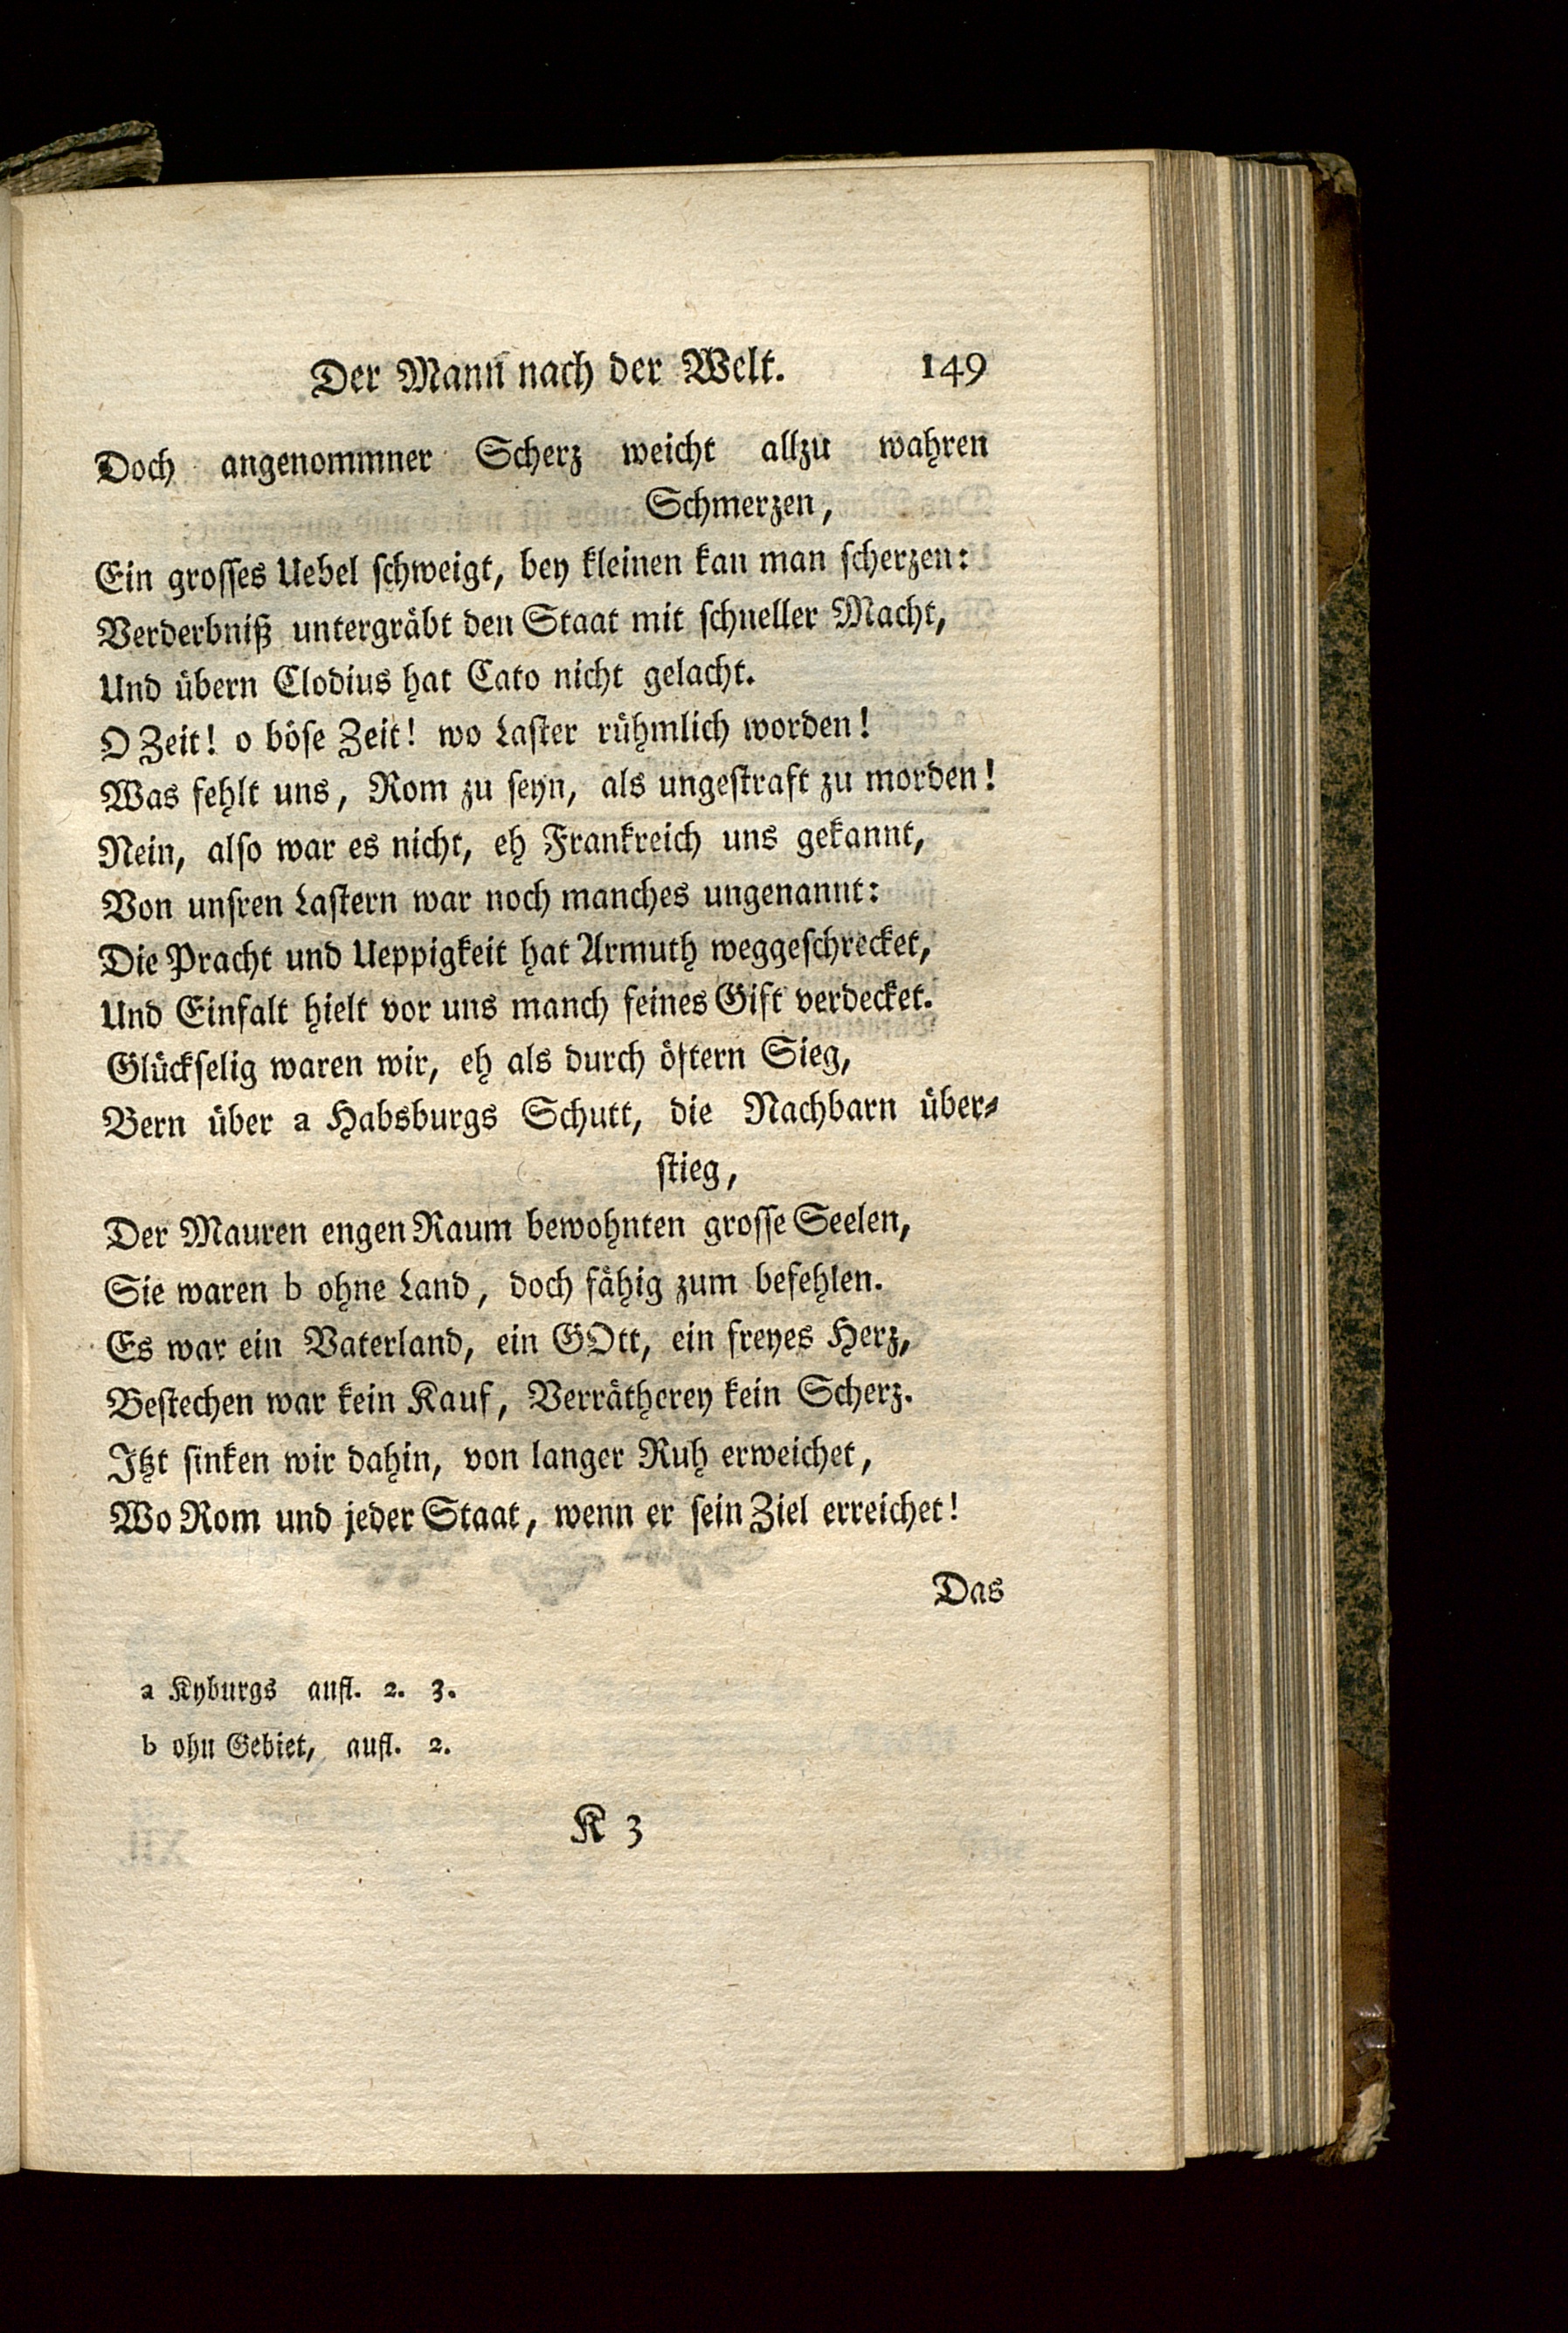 Der Mann nach der Welt. 149
Doch angenommner Scherz weicht allzu wahren
Schmerzen,
Ein grosses Uebel schweigt, bey kleinen kan man scherzen:
Verderbniß untergräbt den Staat mit schneller Macht,
Und übern Clodius hat Cato nicht gelacht.
O Zeit! o böse Zeit! wo Laster rühmlich worden!
Was fehlt uns, Rom zu seyn, als ungestraft zu morden!
Nein, also war es nicht, eh Frankreich uns gekannt,
Von unsren Lastern war noch manches ungenannt:
Die Pracht und Ueppigkeit hat Armuth weggeschrecket,
Und Einfalt hielt vor uns manch feines Gift verdecket.
Glückselig waren wir, eh als durch öftern Sieg,
Bern über a Habsburgs Schutt, die Nachbarn über-
stieg,
Der Mauren engen Raum bewohnten grosse Seelen,
Sie waren b ohne Land, doch fähig zum befehlen.
Es war ein Vaterland, ein GOtt, ein freyes Herz,
Bestechen war kein Kauf, Verrätherey kein Scherz.
Itzt sinken wir dahin, von langer Ruh erweichet,
Wo Rom und jeder Staat, wenn er sein Ziel erreichet!
Das
a Kyburgs aufl. 2. 3.
b ohn Gebiet, aufl. 2.
K 3